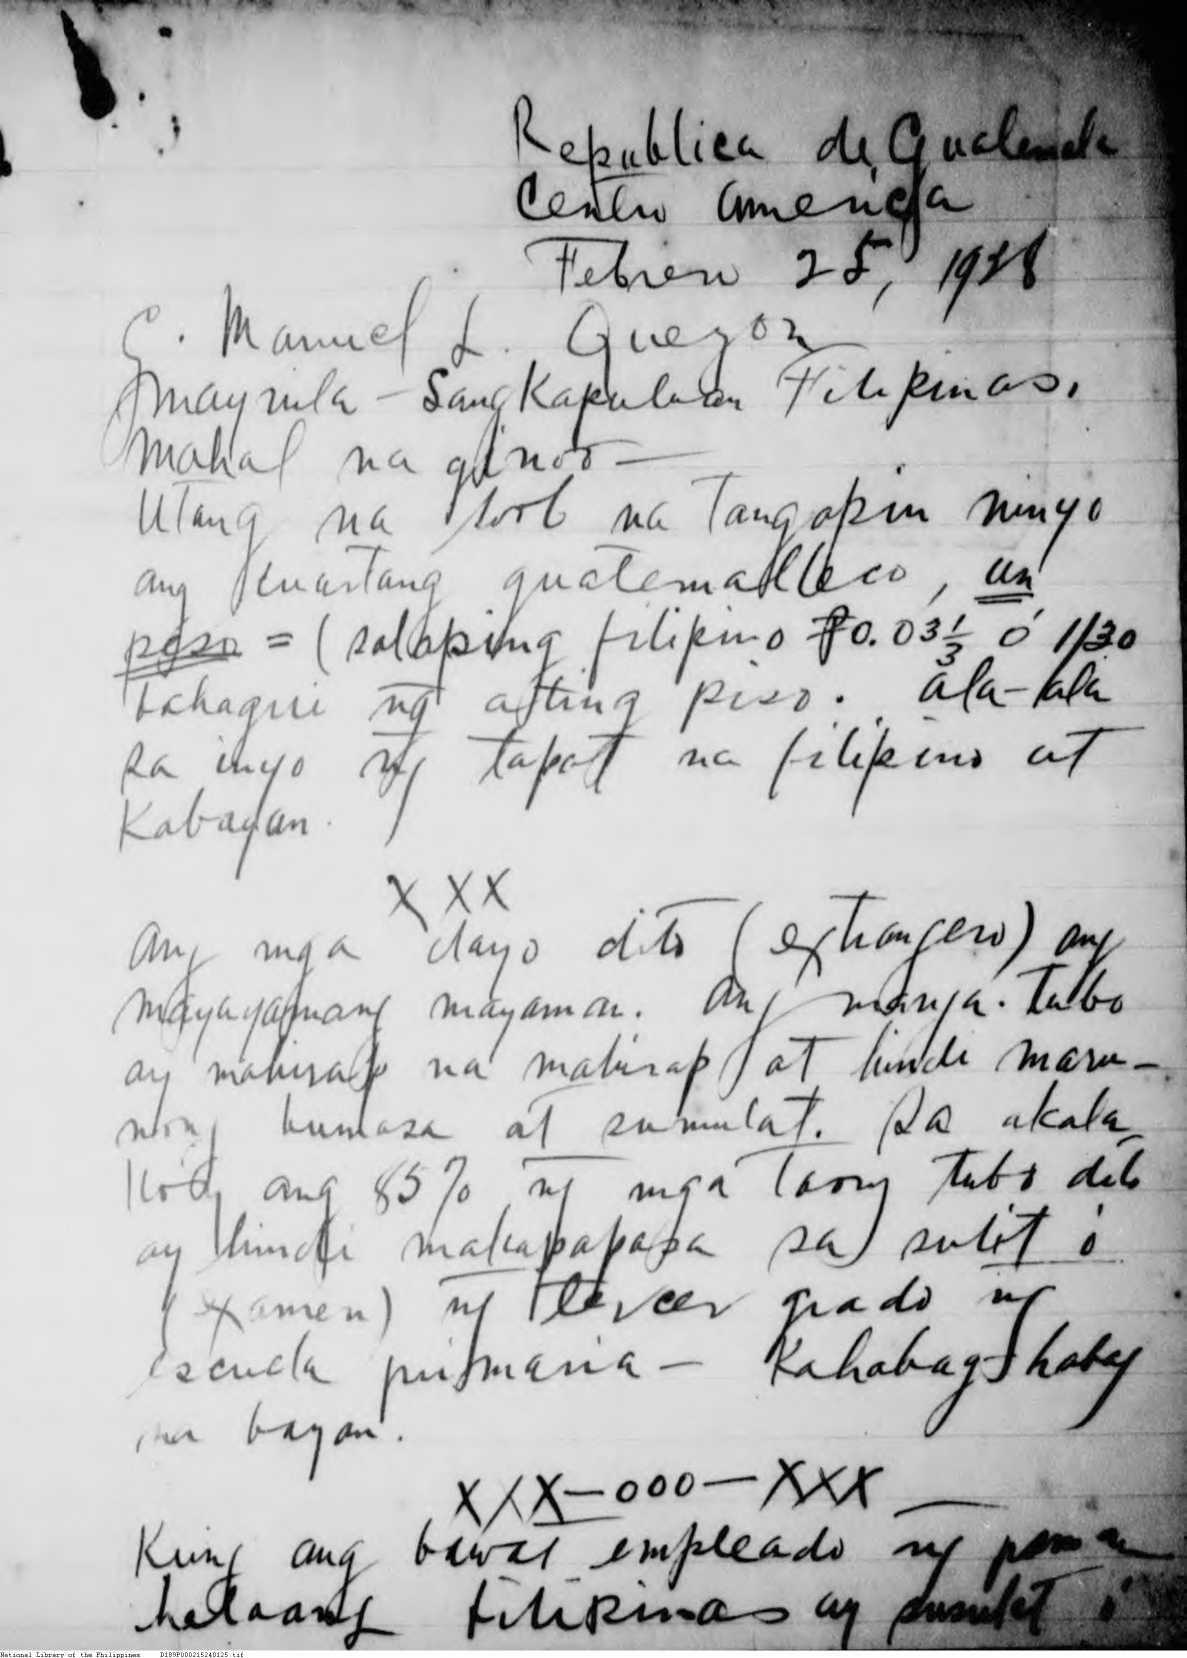 Republica de Guatemala
Centro America
Febrero 25, 1928
E. Manuel L. Quezon
Maynila - Sangkapuluan Filipinas.
Mahal na ginoo —
Utang na loob na tangapin ninyo
ang kuartang guatemalteco, un
peso = (salaping filipino ₱0.03 1/3 ó 1/30
bahagui ng ating piso. ala-ala
sa inyo ng tapat na filipino at
Kabayan.
X X X
Ang mga dayo dito (extrangero) ang
mayayamang mayaman. Ang manga tubo
ay mahirap na mahirap at hindi maru-
nong bumasa at sumulat. Sa akala
ko'y ang 85% ng mga taong tubo dito
ay hindi makapapasa sa sulit ó
(examen) ng tercer grado ng
escuela primaria — Kahabag-habag
na bayan.
XXX—000—XXX
Kung ang bawat empleado ng pama
halaang Filipinas ay susulat ó
National Library of the Philippines D189P000215240125.tif